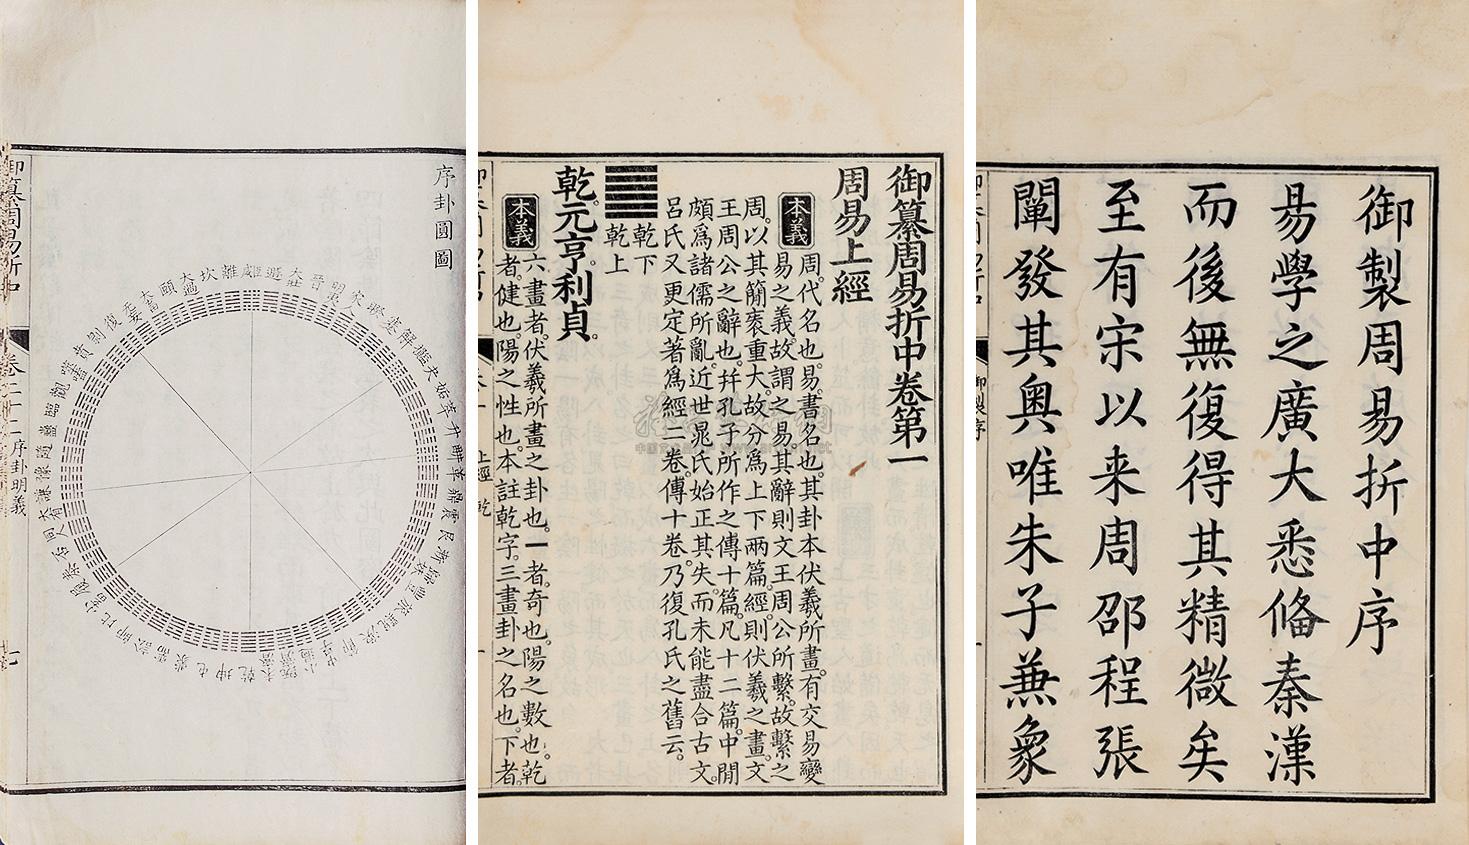 御製周易折中序
易學之廣大悉備秦漢
而後無復得其精微矣
至有宋以来周邵程張
闡發其奥唯朱子兼象
御纂周易折中卷第一
周易上經
本義
周。代名也。易。書名也。其卦本伏羲所畫。有交易變
易之義。故謂之易。其辭則文王周公所繫。故繫之
周。以其簡袠重大。故分爲上下兩篇。經則伏羲之畫。文
王周公之辭也。幷孔子所作之傳十篇。凡十二篇。中閒
頗爲諸儒所亂。近世晁氏始正其失。而未能盡合古文。
呂氏又更定著爲經二卷。傳十卷。乃復孔氏之舊云。
乾下
乾上
乾。元亨。利貞。
本義
六畫者。伏羲所畫之卦也。一者。奇也。陽之數也。乾
者。健也。陽之性也。本註乾字。三畫卦之名也。下者。
上經 乾
御製序
序卦圓圖
御纂周易折中
卷二十二序卦明義